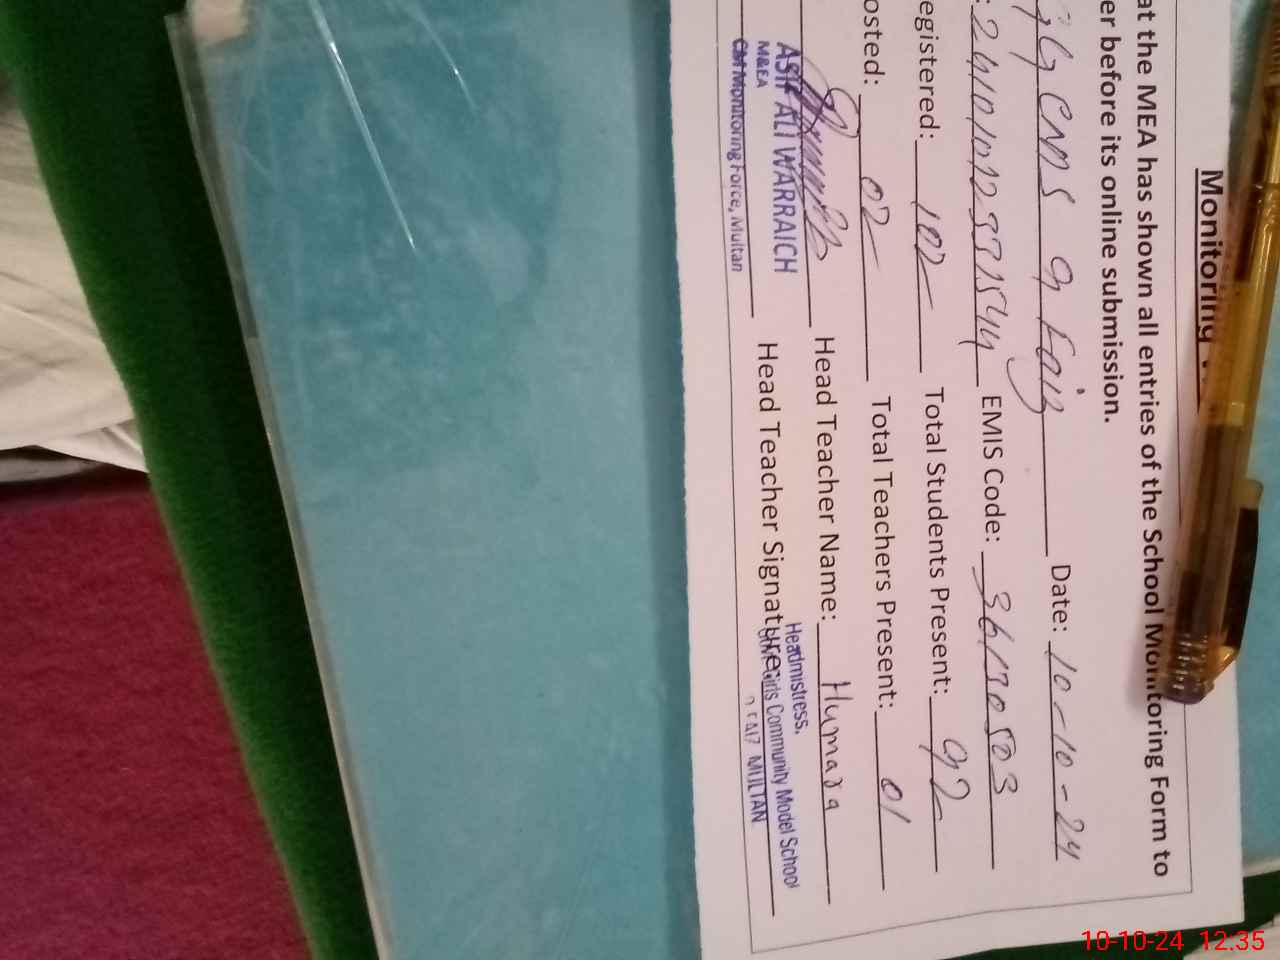 Monitoring
at the MEA has shown all entries of the School Monitoring Form to
er before its online submission.
GGCMS 9 Faiz Date: 10-10-24
: 24101012331544 EMIS Code: 36170503
egistered: 102 Total Students Present: 92
osted: 02 Total Teachers Present: 01
Head Teacher Name: Humara
ASIF ALI WARRAICH
M&EA
CM Monitoring Force, Multan
Head Teacher Signature
Headmistress,
Girls Community Model School
9 FAIZ MULTAN
10-10-24 12:35